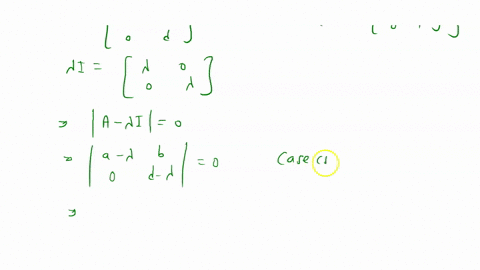 [ 0 d ]
λI = [ λ 0
0 λ ]
⇒ |A - λI| = 0
⇒ | a-λ b
0 d-λ | = 0 Case (1
⇒